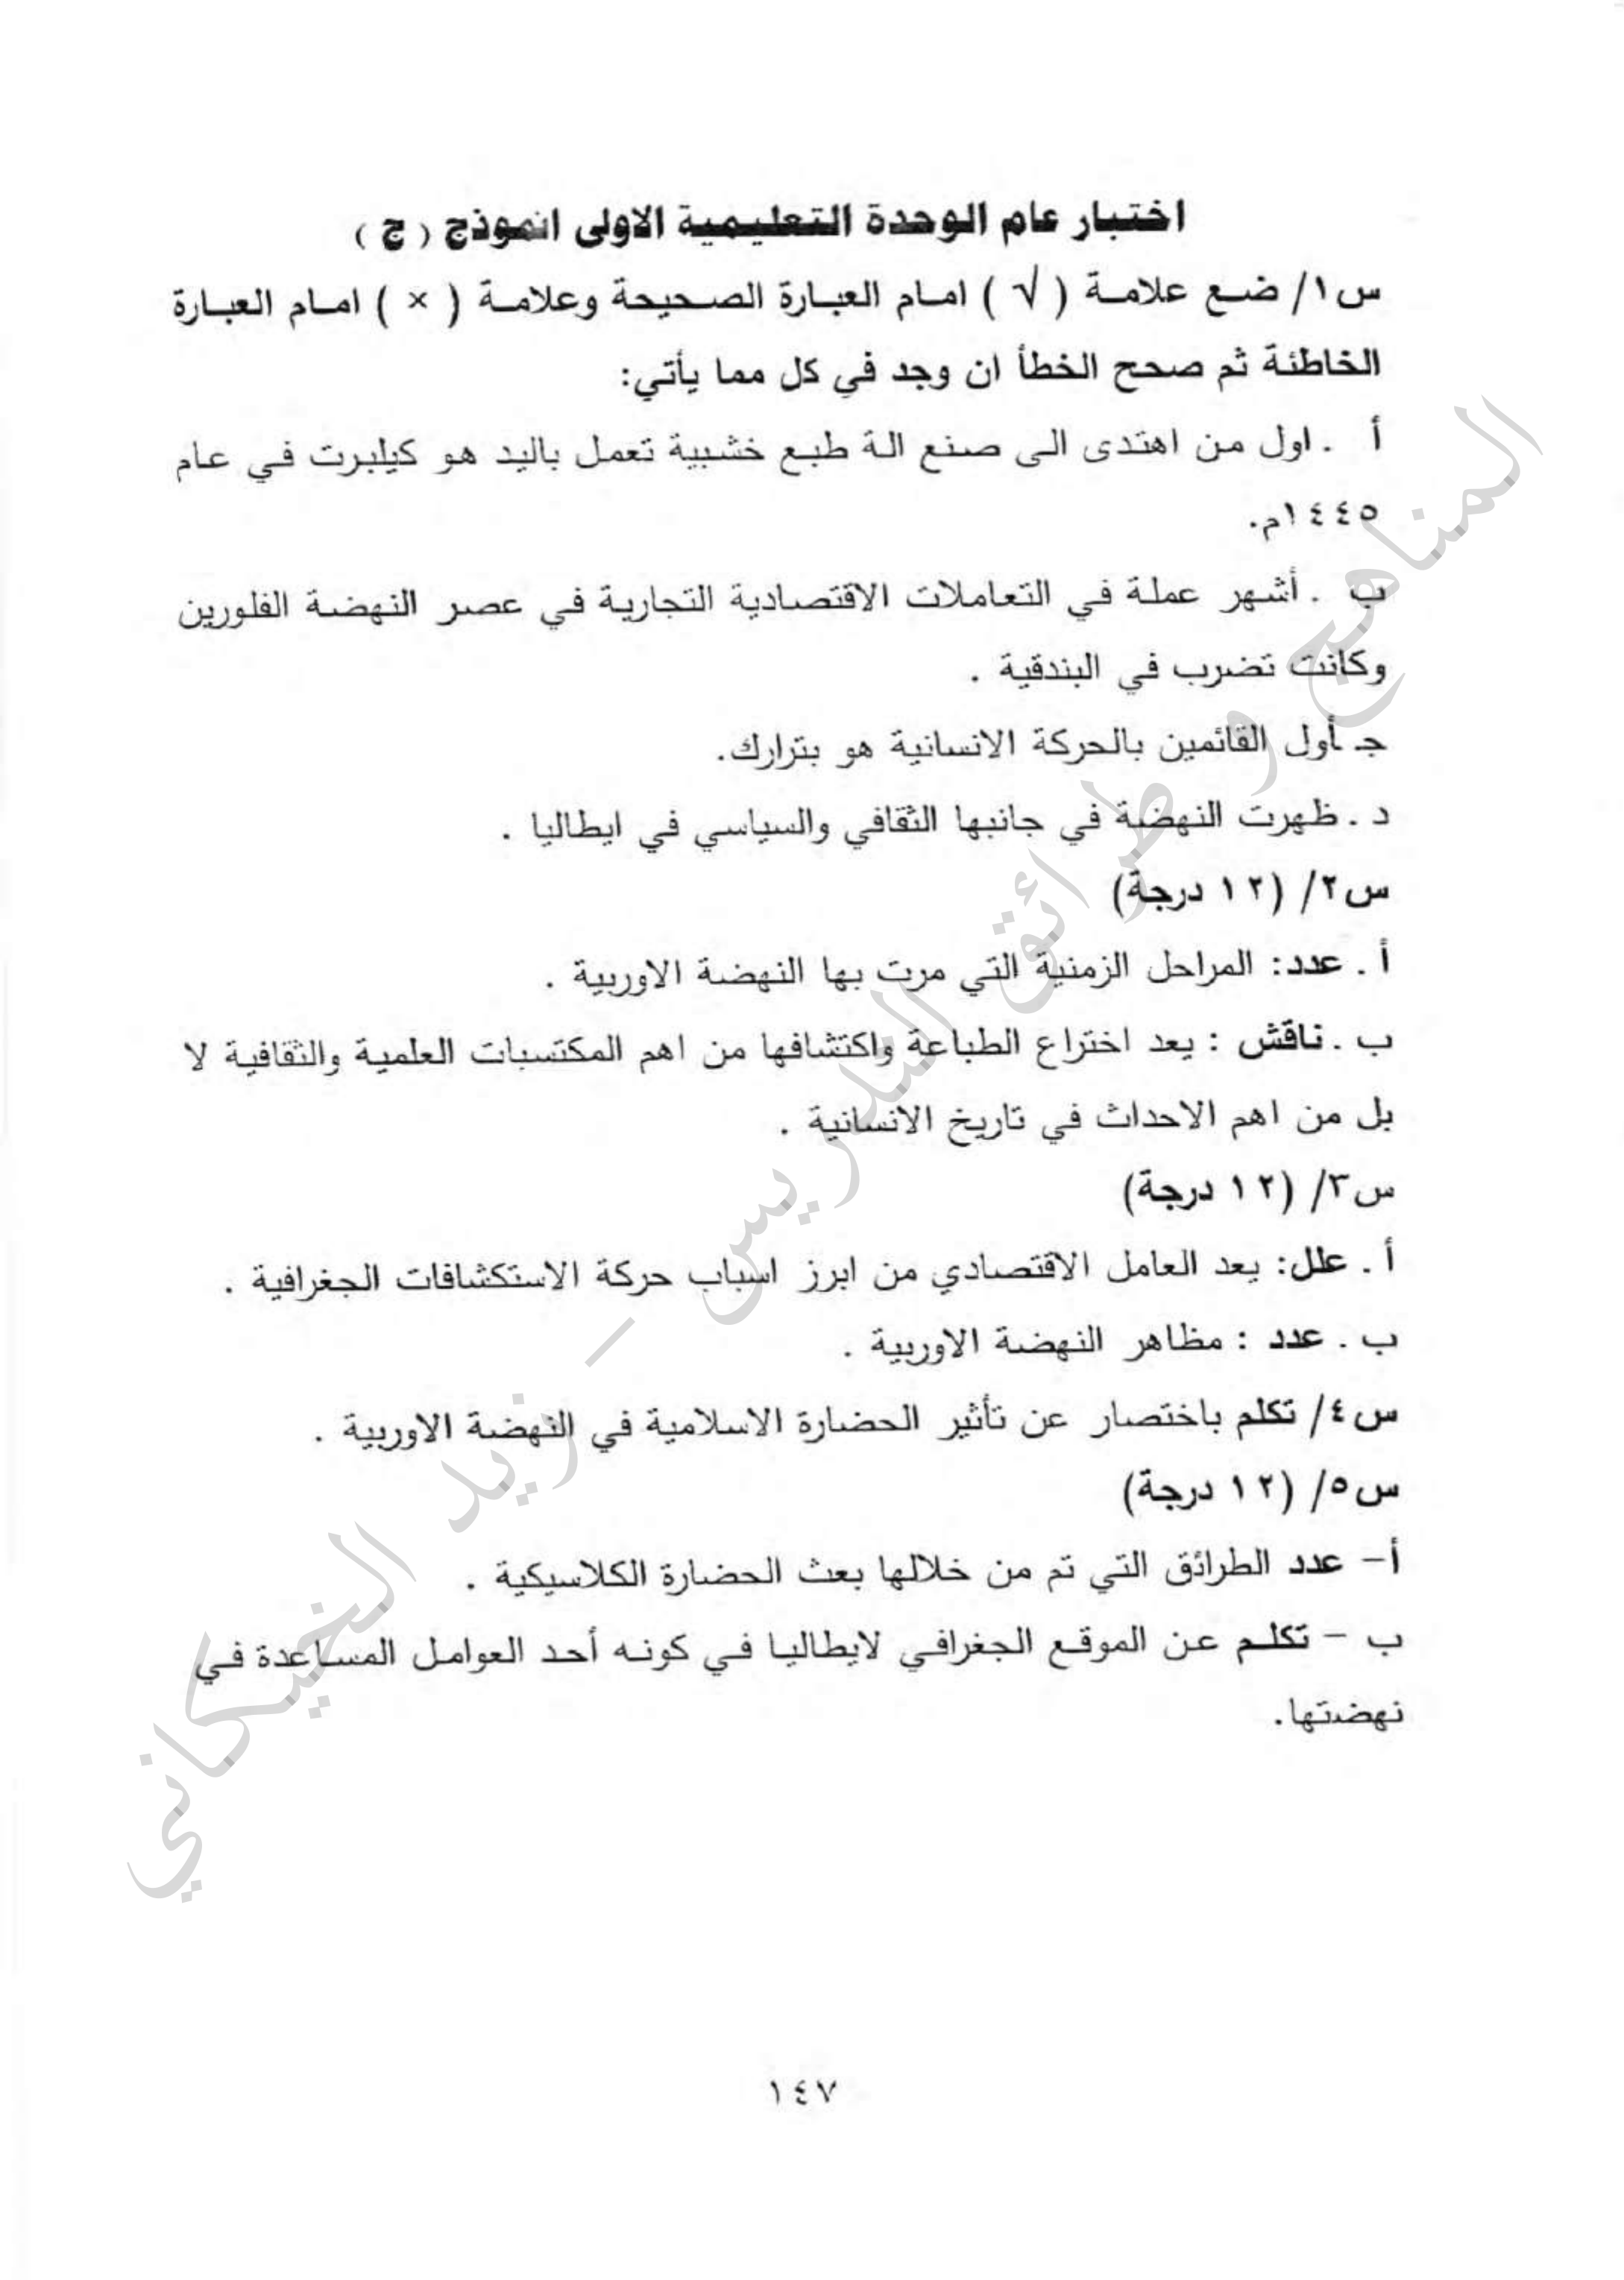 اختبار عام الوحدة التعليمية الاولى انموذج ( ج )
س١/ ضع علامة ( √ ) امام العبارة الصحيحة وعلامة ( × ) امام العبارة
الخاطئة ثم صحح الخطأ ان وجد في كل مما يأتي:
أ . اول من اهتدى الى صنع الة طبع خشبية تعمل باليد هو كيلبرت في عام
١٤٤٥م.
ب . أشهر عملة في التعاملات الاقتصادية التجارية في عصر النهضة الفلورين
وكانت تضرب في البندقية .
جـ أول القائمين بالحركة الانسانية هو بترارك.
د . ظهرت النهضة في جانبها الثقافي والسياسي في ايطاليا .
س٢/ (١٢ درجة)
أ . عدد: المراحل الزمنية التي مرت بها النهضة الاوربية .
ب . ناقش : يعد اختراع الطباعة واكتشافها من اهم المكتسبات العلمية والثقافية لا
بل من اهم الاحداث في تاريخ الانسانية .
س٣/ (١٢ درجة)
أ . علل: يعد العامل الاقتصادي من ابرز اسباب حركة الاستكشافات الجغرافية .
ب . عدد : مظاهر النهضة الاوربية .
س٤/ تكلم باختصار عن تأثير الحضارة الاسلامية في النهضة الاوربية .
س٥/ (١٢ درجة)
أ– عدد الطرائق التي تم من خلالها بعث الحضارة الكلاسيكية .
ب – تكلم عن الموقع الجغرافي لايطاليا في كونه أحد العوامل المساعدة في
نهضتها.
١٤٧
المناهج وطرائق التدريس – زيد الخيكاني